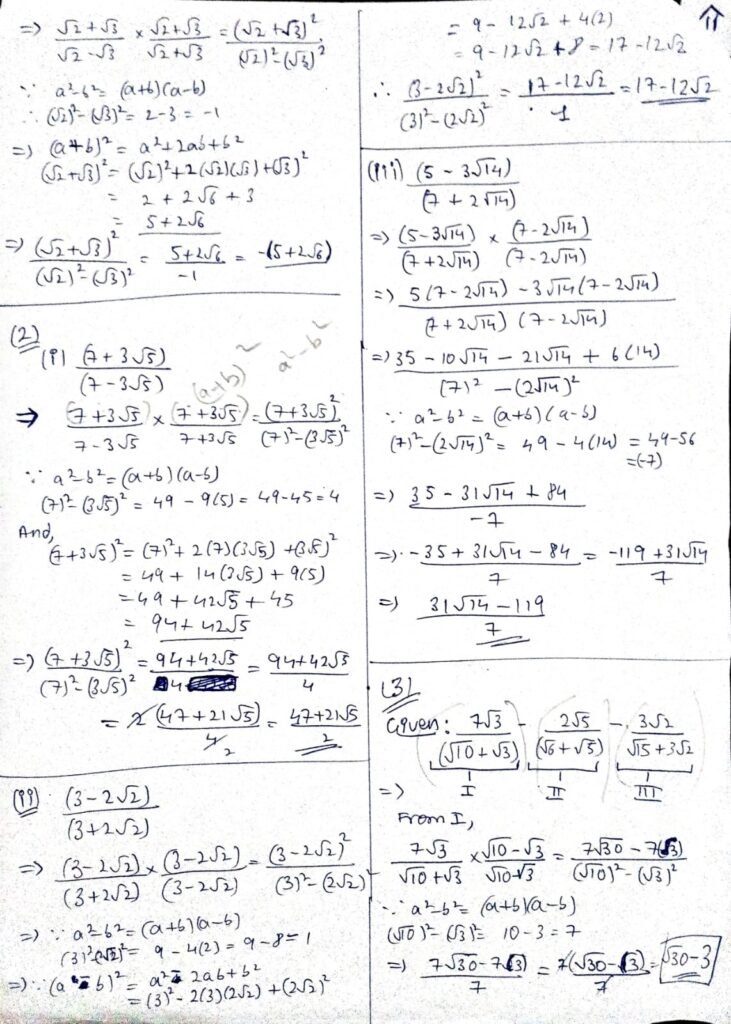 ⇒ √2+√3/√2-√3 × √2+√3/√2+√3 = (√2+√3)²/(√2)²-(√3)²
∵ a²-b² = (a+b)(a-b)
∴ (√2)²-(√3)² = 2-3 = -1
⇒ (a+b)² = a²+2ab+b²
(√2+√3)² = (√2)²+2(√2)(√3)+(√3)²
= 2 + 2√6 + 3
= 5+2√6
⇒ (√2+√3)²/(√2)²-(√3)² = 5+2√6/-1 = -(5+2√6)
(2)
(i) (7+3√5)/(7-3√5)
(a+b)² a²-b²
⇒ 7+3√5/7-3√5 × (7+3√5)/7+3√5 = (7+3√5)²/(7)²-(3√5)²
∵ a²-b² = (a+b)(a-b)
(7)²-(3√5)² = 49-9(5) = 49-45 = 4
And,
(7+3√5)² = (7)²+2(7)(3√5)+(3√5)²
= 49 + 14(3√5) + 9(5)
= 49 + 42√5 + 45
= 94+42√5
⇒ (7+3√5)²/(7)²-(3√5)² = 94+42√5/4 = 94+42√5/4
= 2(47+21√5)/4 2 = 47+21√5/2
(ii) (3-2√2)/(3+2√2)
⇒ (3-2√2)/(3+2√2) × (3-2√2)/(3-2√2) = (3-2√2)²/(3)²-(2√2)²
⇒ ∵ a²-b² = (a+b)(a-b)
(3)²-(2√2)² = 9-4(2) = 9-8 = 1
⇒ ∵ (a-b)² = a²-2ab+b²
= (3)²-2(3)(2√2)+(2√2)²
11
= 9-12√2+4(2)
= 9-12√2+8 = 17-12√2
∴ (3-2√2)²/(3)²-(2√2)² = 17-12√2/1 = 17-12√2
(iii) (5-3√14)/(7+2√14)
⇒ (5-3√14)/(7+2√14) × (7-2√14)/(7-2√14)
⇒ 5(7-2√14)-3√14(7-2√14)/(7+2√14)(7-2√14)
⇒ 35-10√14-21√14+6(14)/(7)²-(2√14)²
∵ a²-b² = (a+b)(a-b)
(7)²-(2√14)² = 49-4(14) = 49-56
= (-7)
⇒ 35-31√14+84/-7
⇒ -35+31√14-84/7 = -119+31√14/7
⇒ 31√14-119/7
(3)
Given: 7√3/(√10+√3) - 2√5/(√6+√5) - 3√2/√15+3√2
⇒ I II III
From I,
7√3/√10+√3 × √10-√3/√10-√3 = 7√30-7(3)/(√10)²-(√3)²
∵ a²-b² = (a+b)(a-b)
(√10)²-(√3)² = 10-3 = 7
⇒ 7√30-7(3)/7 = 7(√30-(3))/7 = √30-3